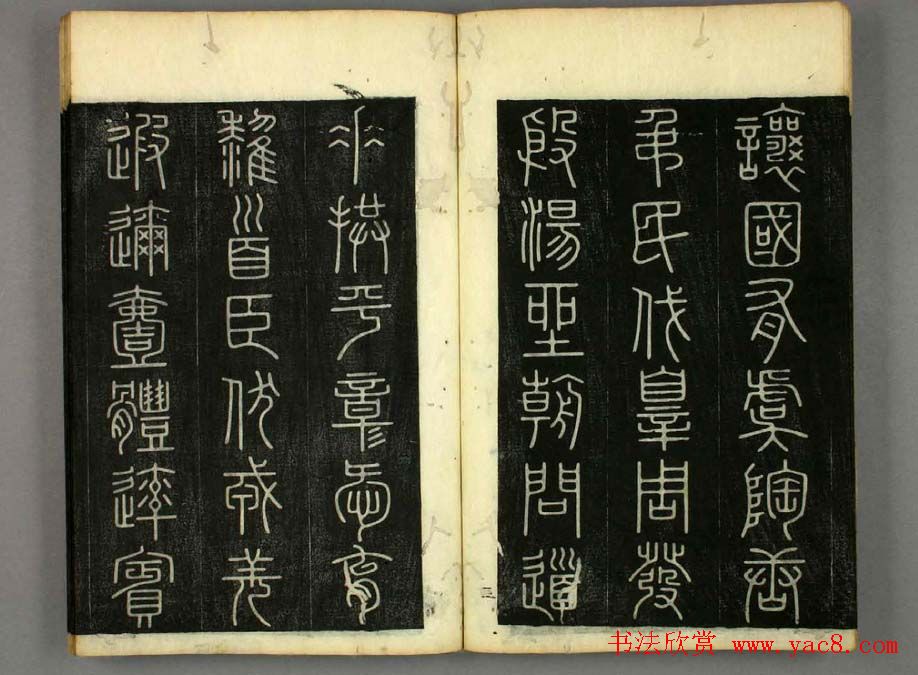 讓國有虞陶唐
弔民伐辠周發
殷湯坐朝問道
垂拱平章愛育
黎首臣伏戎羌
遐邇壹體率賓
三
书法欣赏 www.yac8.com